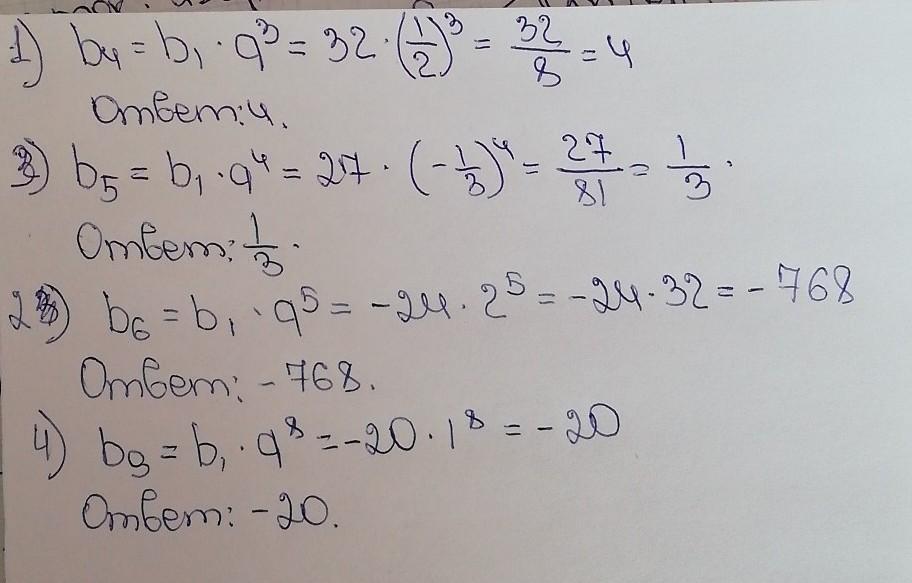 1) b₄ = b₁ · q³ = 32 · (1/2)³ = 32/8 = 4
Ответ: 4.
3) b₅ = b₁ · q⁴ = 27 · (-1/3)⁴ = 27/81 = 1/3.
Ответ: 1/3.
2) b₆ = b₁ · q⁵ = -24 · 2⁵ = -24 · 32 = -768
Ответ: -768.
4) b₉ = b₁ · q⁸ = -20 · 1⁸ = -20
Ответ: -20.